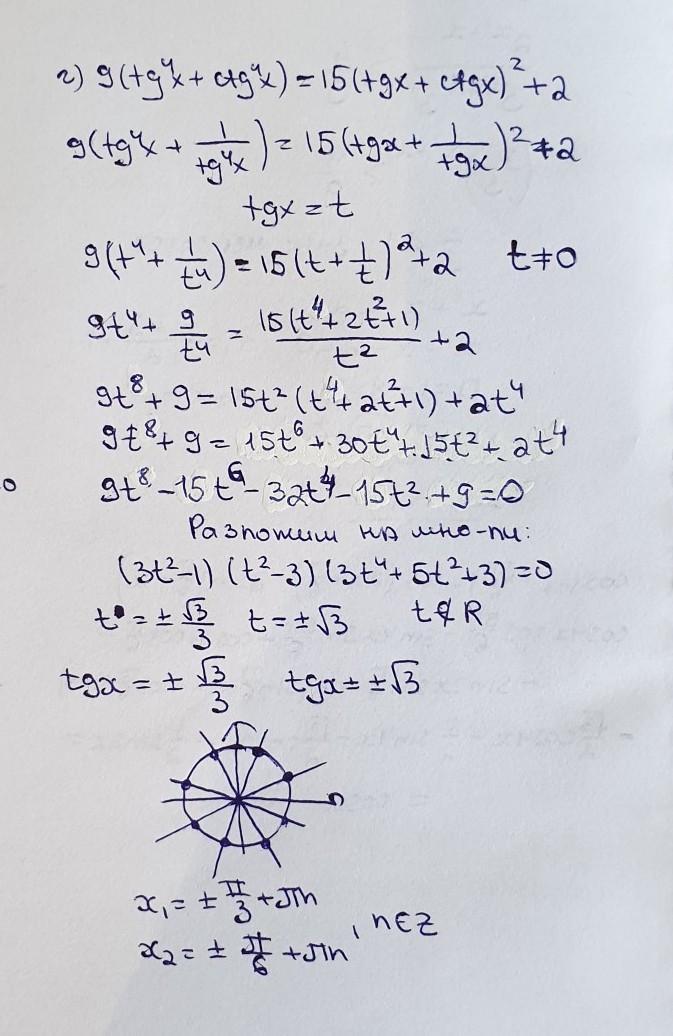 г) 9(tg⁴x + ctg⁴x) = 15(tgx + ctgx)² + 2
9(tg⁴x + 1/tg⁴x) = 15(tgx + 1/tgx)² + 2
tgx = t
9(t⁴ + 1/t⁴) = 15(t + 1/t)² + 2 t ≠ 0
9t⁴ + 9/t⁴ = 15(t⁴ + 2t² + 1)/t² + 2
9t⁸ + 9 = 15t² (t⁴ + 2t² + 1) + 2t⁴
9t⁸ + 9 = 15t⁶ + 30t⁴ + 15t² + 2t⁴
9t⁸ - 15t⁶ - 32t⁴ - 15t² + 9 = 0
Разложим на мно-ли:
(3t² - 1) (t² - 3) (3t⁴ + 5t² + 3) = 0
t = ± √3/3 t = ± √3 t ∉ R
tgx = ± √3/3 tgx ± ± √3
x₁ = ± π/3 + πn
x₂ = ± π/6 + πn , n ∈ Z